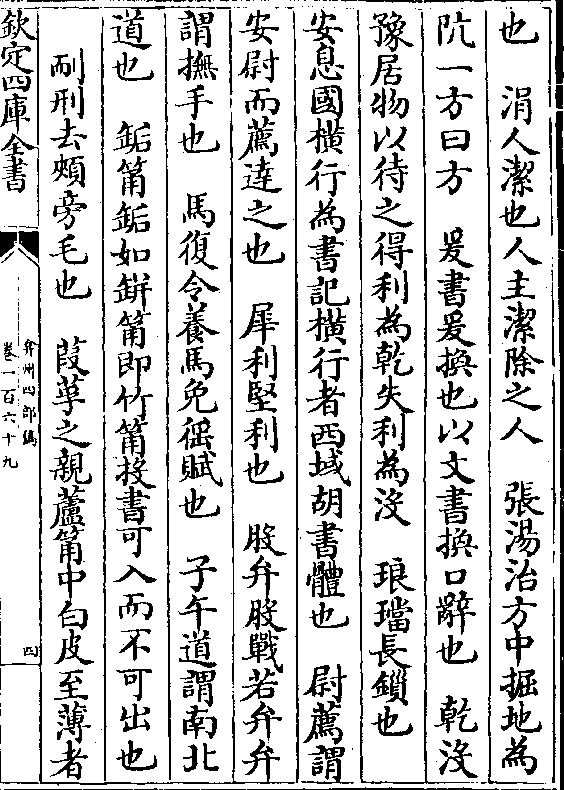 也　涓人潔也人主潔除之人　張湯治方中掘地為
阬一方曰方　爰書爰換也以文書換口辭也　乾沒
豫居物以待之得利為乾失利為沒　琅璫長鎖也
安息國橫行為書記橫行者西域胡書體也　尉薦謂
安尉而薦達之也　犀利堅利也　股弁股戰若弁弁
謂撫手也　馬復令養馬免徭賦也　子午道謂南北
道也　缿筩缿如缾筩即竹筩投書可入而不可出也
耏刑去頰旁毛也　葭莩之親蘆筩中白皮至薄者
欽定四庫全書
弇州四部稿
卷一百六十九
四